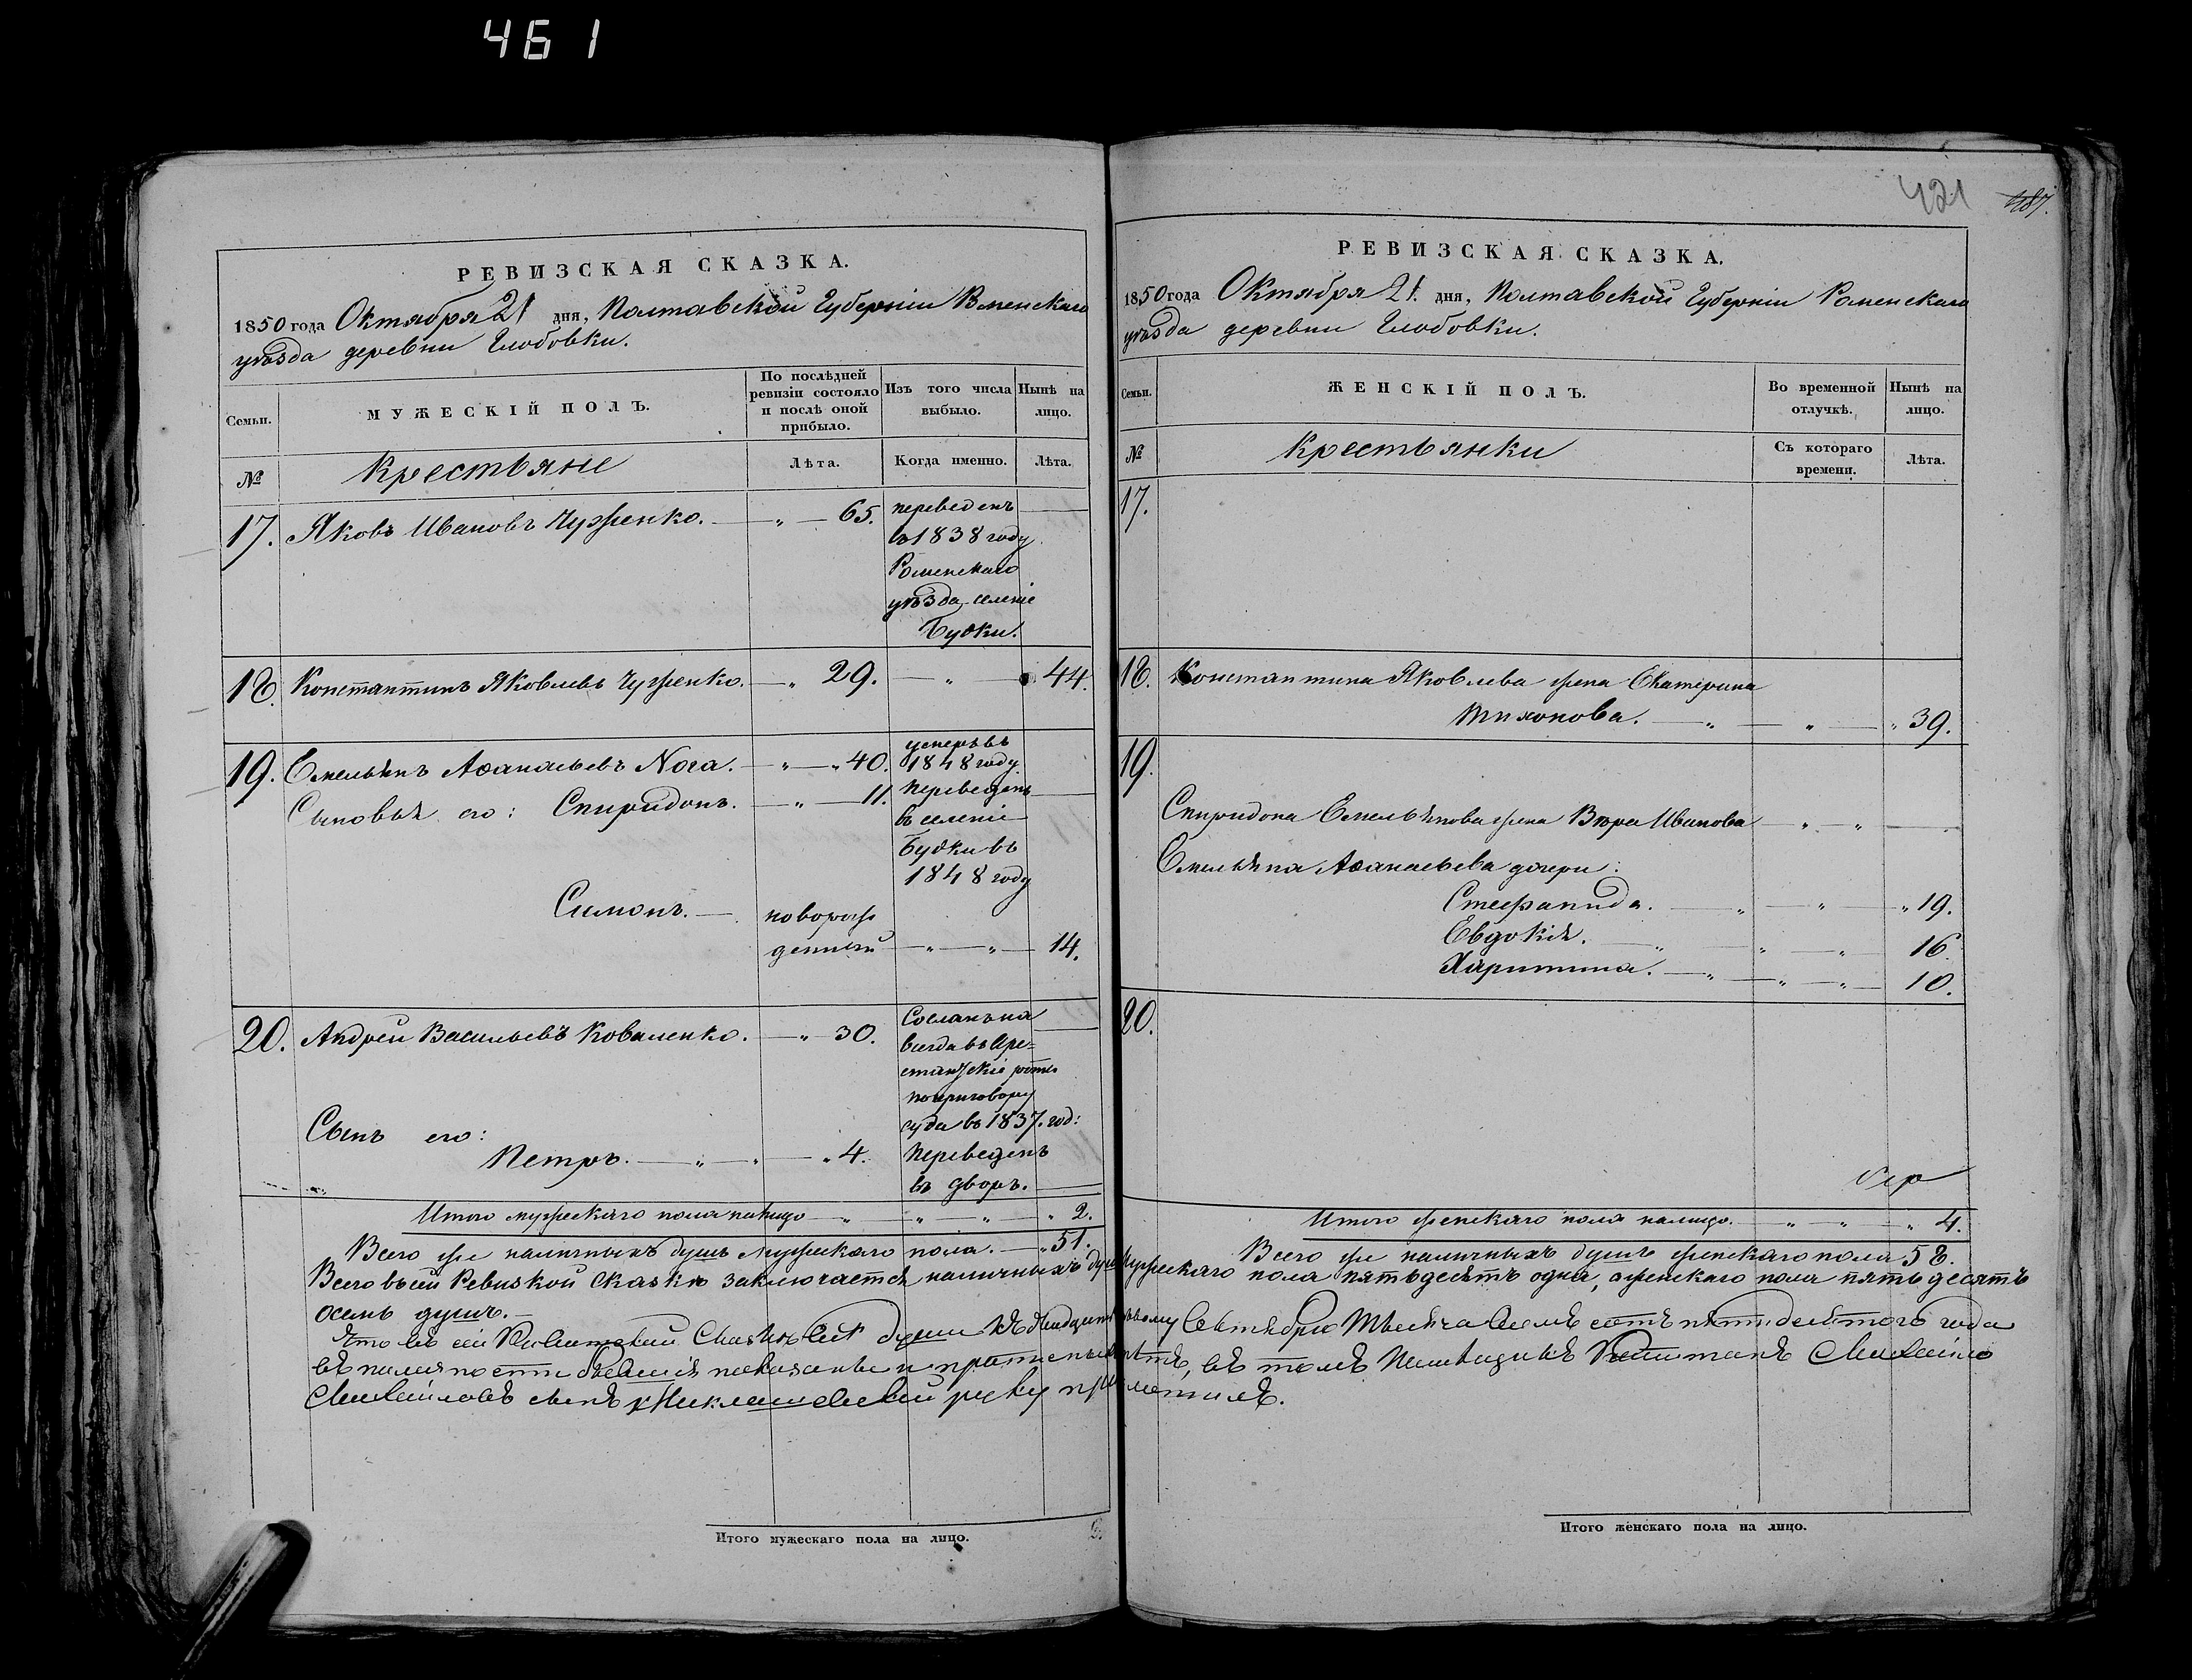 461
421
487.
РЕВИЗСКАЯ СКАЗКА.
1850 года Октября 21 дня, Полтавской Губерніи Роменскаго
уѣзда деревни Глобовки.
Семьи.
МУЖЕСКІЙ ПОЛЪ.
По послѣдней ревизіи состояло и послѣ оной прибыло.
Изъ того числа выбыло.
Нынѣ на лицо.
№
Крестьяне
Лѣта.
Когда именно.
Лѣта.
17. Яковъ Ивановъ Чуженко. — „ — 65. переведенъ
въ 1838 году
Роменскаго
уѣзда селеніе
Будки.
18. Константинъ Яковлевъ Чуженко. — „ 29. — „ — 44.
19. Емельянъ Аѳанасьевъ Нога. — „ — „ 40. умеръ въ
1848 году
Сыновья его: Спиридонъ. — „ — 11. переведенъ
въ селеніе
Будки въ
1848 году
Симонъ. — новорож
денный — „ — „ — 14.
20. Андрей Васильевъ Коваленко. — „ — 30. Сосланъ на
всегда въ Аре=
стантскіе роты
по приговору
суда въ 1837 год:
Сынъ его:
Петръ. — „ — „ — „ 4. переведенъ
въ дворъ.
Итого мужескаго пола на лицо — „ — „ — „ — „ 2.
Всего же наличныхъ душъ мужескаго пола. — „ 51.
РЕВИЗСКАЯ СКАЗКА.
1850 года Октября 21. дня, Полтавской Губерніи Роменскаго
уѣзда деревни Глобовки.
Семьи.
ЖЕНСКІЙ ПОЛЪ.
Во временной отлучкѣ.
Нынѣ на лицо.
№
Крестьянки
Съ котораго времени.
Лѣта.
17.
18. Константина Яковлева жена Екатерина
Тихонова. — „ — „ — „ 39.
19.
Спиридона Емельянова жена Вѣра Иванова — „ — „ —
Емельяна Аѳанасьева дочери:
Стефанида. — „ — „ — „ 19.
Евдокія. — „ — „ — „ — 16
Харитина. — „ — „ — „ — 10.
20.
Итого женскаго пола на лицо. — „ — „ — „ 4.
Всего же наличныхъ душъ женскаго пола 58.
Всего въ сей Ревизкой Сказкѣ заключается наличныхъ душъ мужескаго пола пятьдесятъ одна, а женскаго пола пятьдесятъ
осемь душъ.—
Что въ сей Ревизской Сказкѣ всѣ души къ двадцать первому Октября мѣсяца осемъ сотъ пятидесятого года
въ наличности бывшія показаны и пропи­сныхъ нѣтъ, въ томъ Помѣщикъ Капитанъ Михайло
Михайловъ сынъ руку приложилъ.
Итого мужескаго пола на лицо.
2.
Итого женскаго пола на лицо.